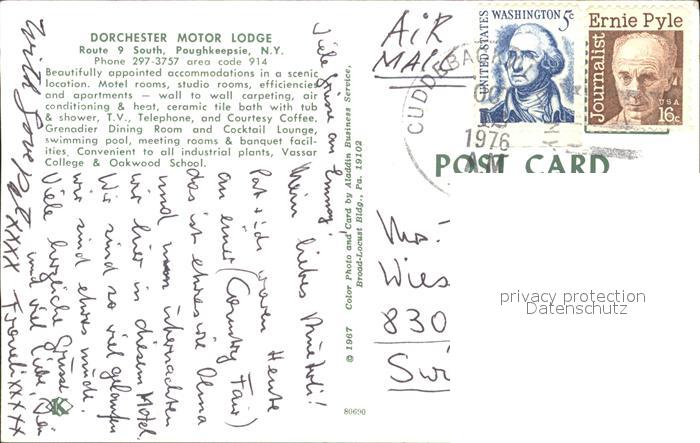 DORCHESTER MOTOR LODGE
Route 9 South, Poughkeepsie, N.Y.
Phone 297-3757 area code 914
Beautifully appointed accommodations in a scenic
location. Motel rooms, studio rooms, efficiencies
and apartments — wall to wall carpeting, air
conditioning & heat, ceramic tile bath with tub
& shower, T.V., Telephone, and Courtesy Coffee.
Grenadier Dining Room and Cocktail Lounge,
swimming pool, meeting rooms & banquet facil-
ities. Convenient to all industrial plants, Vassar
College & Oakwood School.
Viele Grüsse an
Mein liebes
Pat + ich waren Heute
an einer (Country Fair)
das ist etwas wie Olma
und nun übernachten
wir hier in diesem Motel.
Wir sind so viel gelaufen
wir sind etwas müde.
Viele herzliche Grüsse
und viel Liebe,
With Love Pat XXXX XXXXX
© 1967 Color Photo and Card by Aladdin Business Service,
Broad-Locust Bldg., Pa. 19102
80690
AiR
MAIL
UNITED STATES
WASHINGTON 5¢
Ernie Pyle
Journalist
USA
16c
CUDDEBACK
1976
AM
POST CARD
Wies
830
privacy protection
Datenschutz